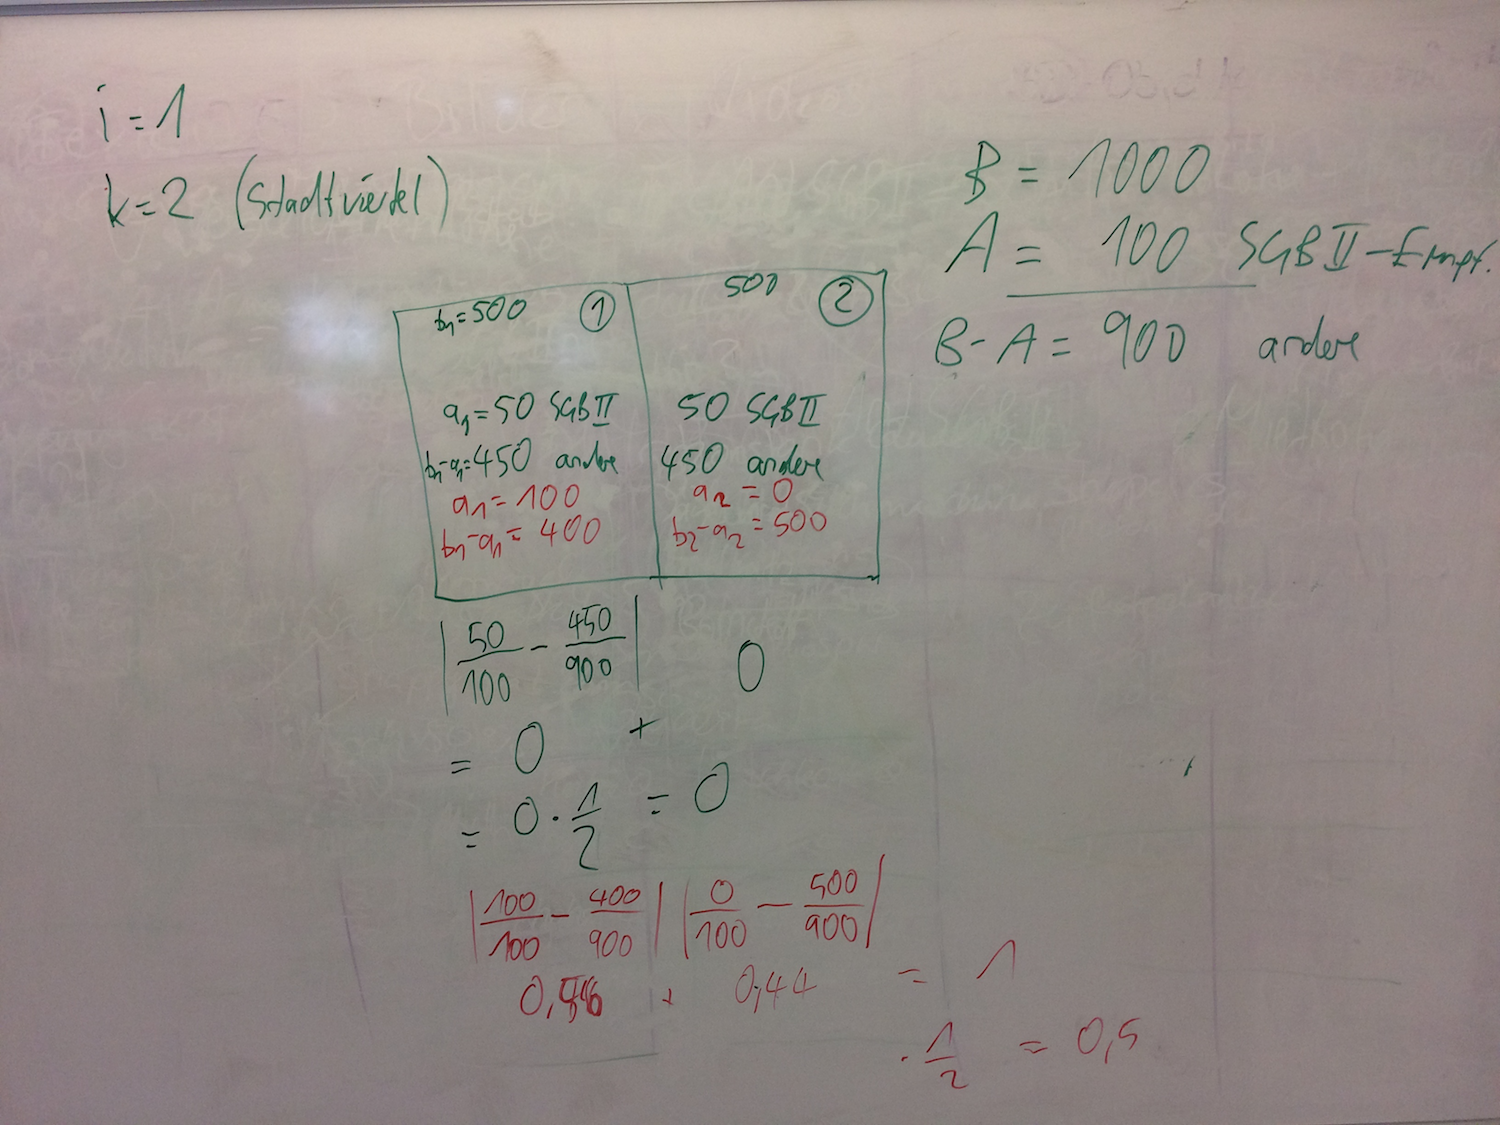 i = 1
k = 2 (Stadtviertel)
B = 1000
A = 100 SGB II-Empf.
B - A = 900 andere
b₁ = 500 ①
500 ②
a₁ = 50 SGB II
b₁-a₁ = 450 andere
a₁ = 100
b₁-a₁ = 400
50 SGB II
450 andere
a₂ = 0
b₂-a₂ = 500
|50/100 - 450/900| 0
= 0 +
= 0 · 1/2 = 0
|100/100 - 400/900| |0/100 - 500/900|
+ 0,44 = 1
· 1/2 = 0,5